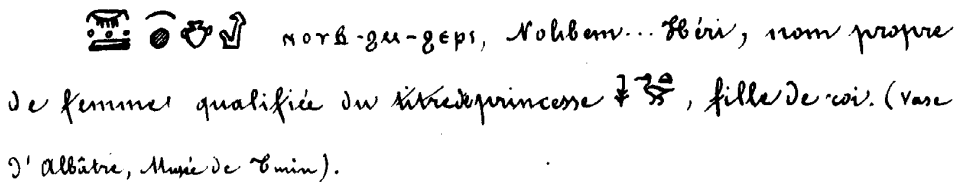 ⲛⲟⲩⲃ-ϩⲙ-ϩⲉⲣⲓ, Noubem... Héri, nom propre
de femme qualifiée du titre de princesse, fille de roi. (Vase
d'Albâtre, Musée de Turin).